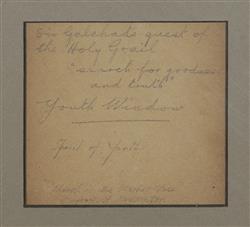 Sir Galahad's quest of
the Holy Grail
"search for goodness
and truth"
Youth Window
of Youth
Church in the